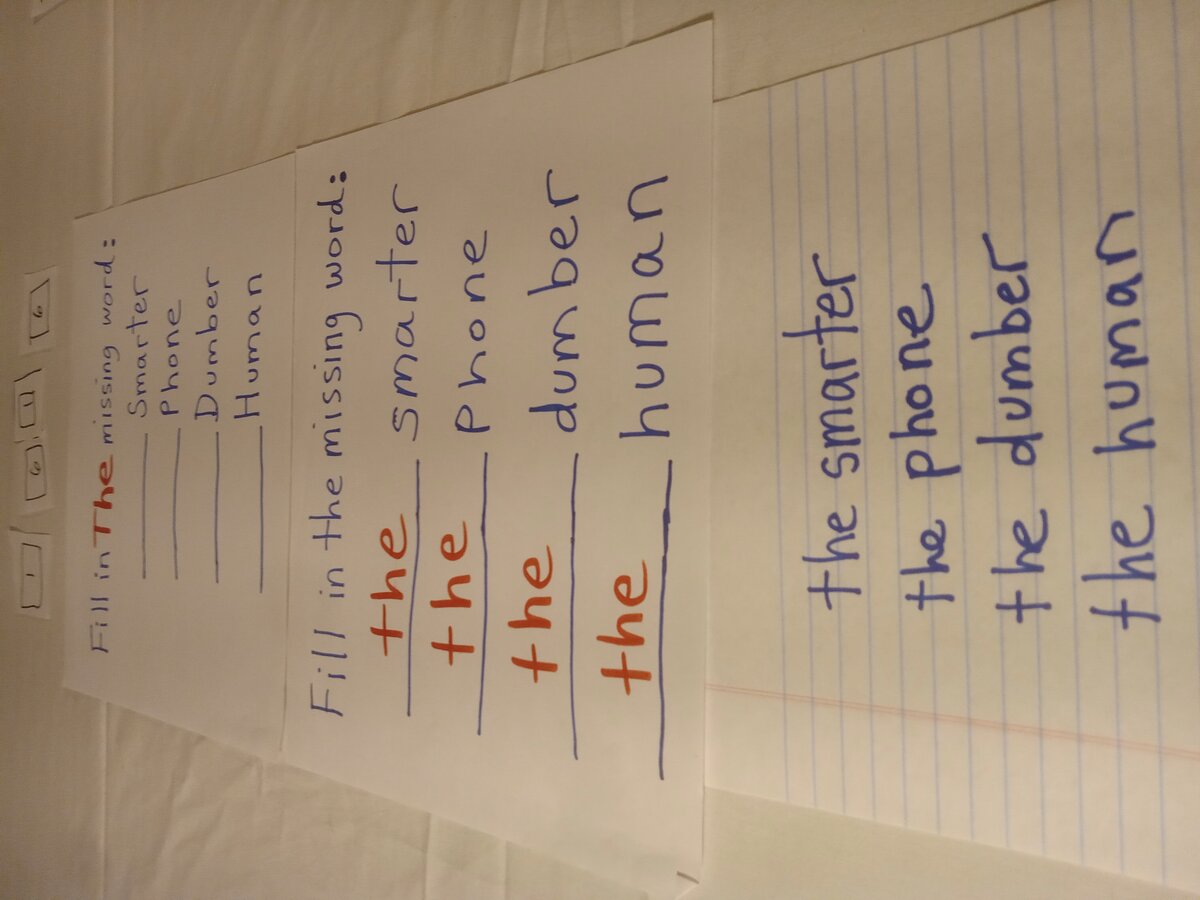 1 6 : 11 6
Fill in The missing word:
____ Smarter
____ Phone
____ Dumber
____ Human
Fill in the missing word:
the smarter
the phone
the dumber
the human
the smarter
the phone
the dumber
the human